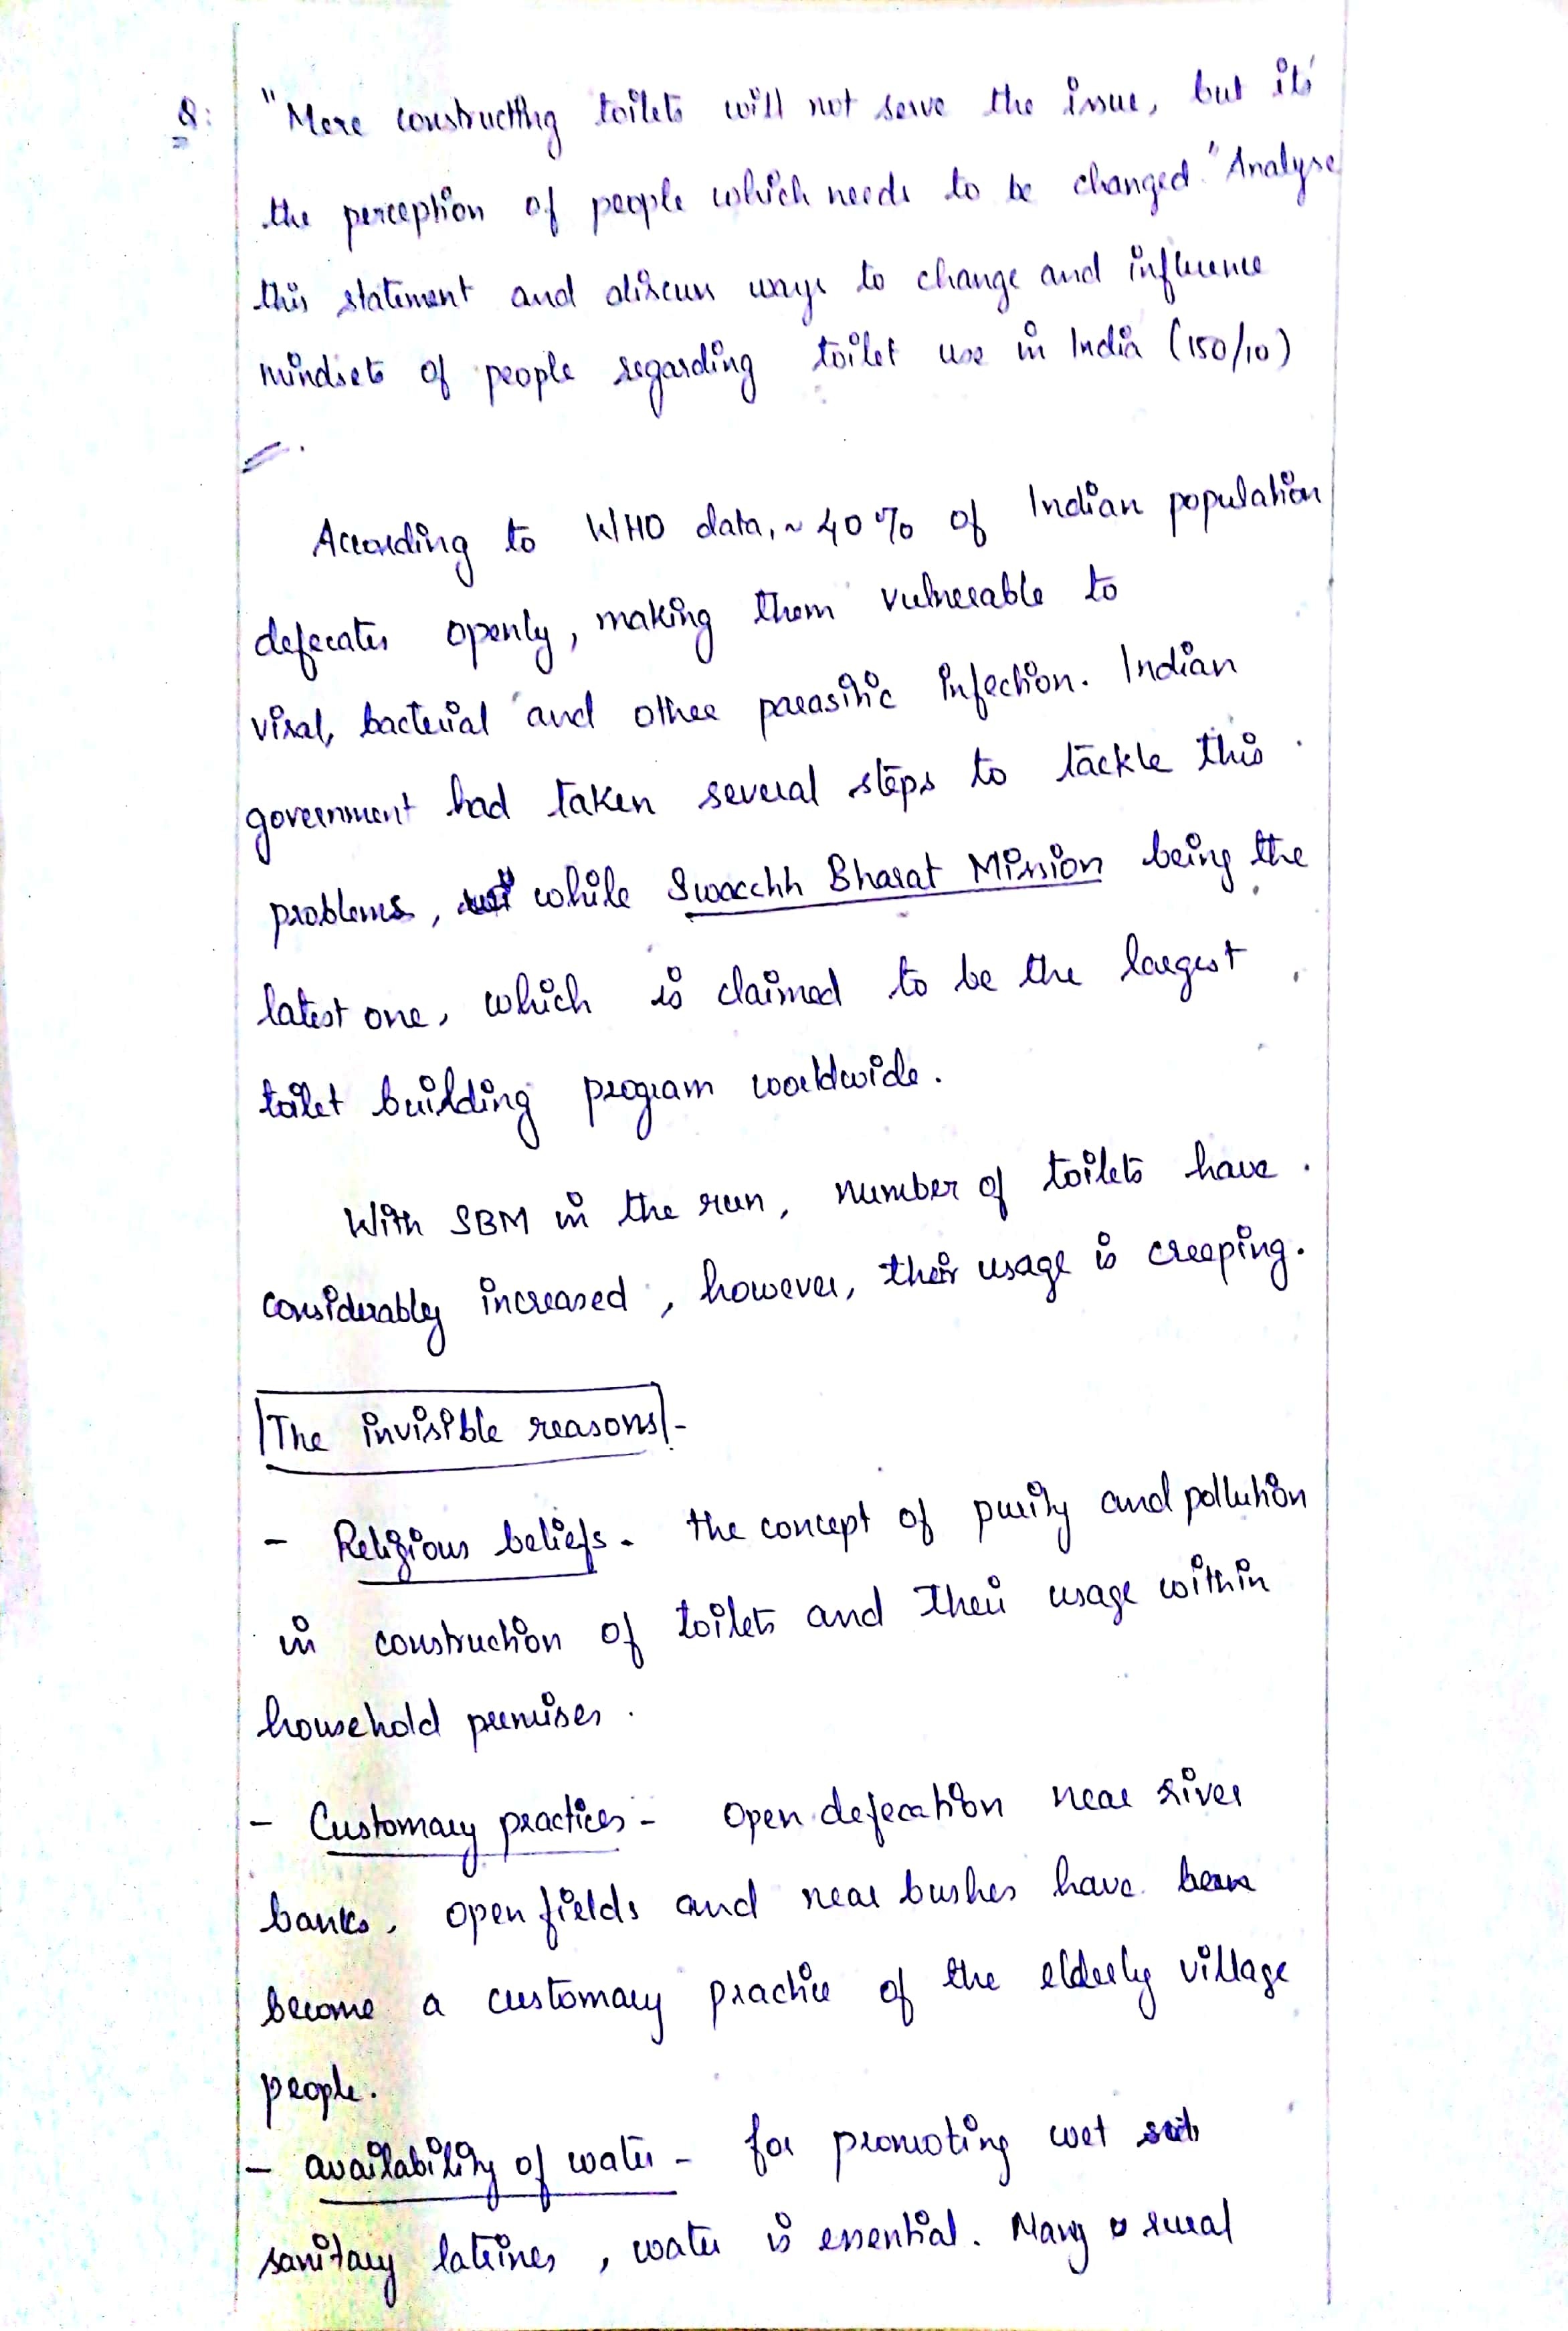 Q: "Mere constructing toilets will not serve the issue, but its
the perception of people which needs to be changed." Analyse
this statement and discuss ways to change and influence
mindsets of people regarding toilet use in India (150/10)
According to WHO data, ~ 40% of Indian population
defecates openly, making them vulnerable to
viral, bacterial and other parasitic infection. Indian
government had taken several steps to tackle this
problems, while Swacchh Bharat Mission being the
latest one, which is claimed to be the largest
toilet building program worldwide.
With SBM in the run, number of toilets have
considerably increased, however, their usage is creeping.
The invisible reasons -
- Religious beliefs - the concept of purity and pollution
in construction of toilets and their usage within
household premises.
- Customary practices - open defecation near river
banks, open fields and near bushes have
become a customary practice of the elderly village
people.
- availability of water - for promoting wet
sanitary latrines, water is essential. Many rural